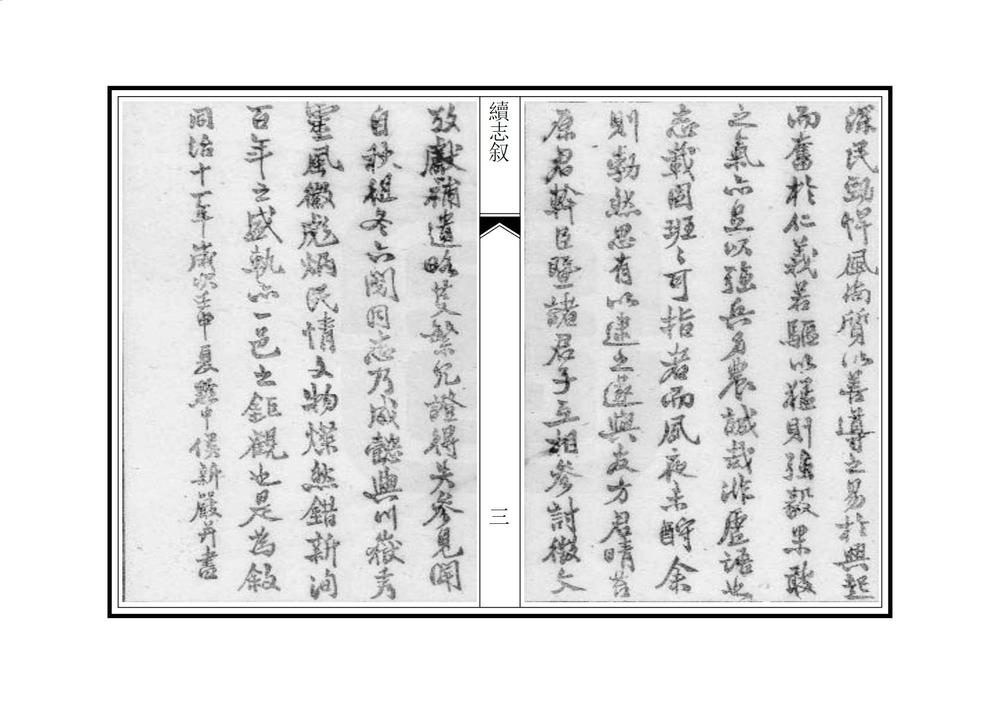 深民勁悍風尚質以善導之易於興起
而奮於仁義若驅以猛則強毅果敢
之氣亦足以強兵力農誠哉非虛語也
志載固班々可指者而夙夜未酬余
則勃然思有以逮之遂與友方君晴
原君幹臣暨諸君子互相參討徵文
續志叙
三
攷獻補遺略芟繁允證得失參見聞
自秋徂冬六閱月志乃成懿典川嶽秀
靈風徽彪炳民情文物燦然錯新洵
百年之盛執亦一邑之鉅觀也是為叙
同治十一年歲次壬申夏黔中侯新嚴幷書